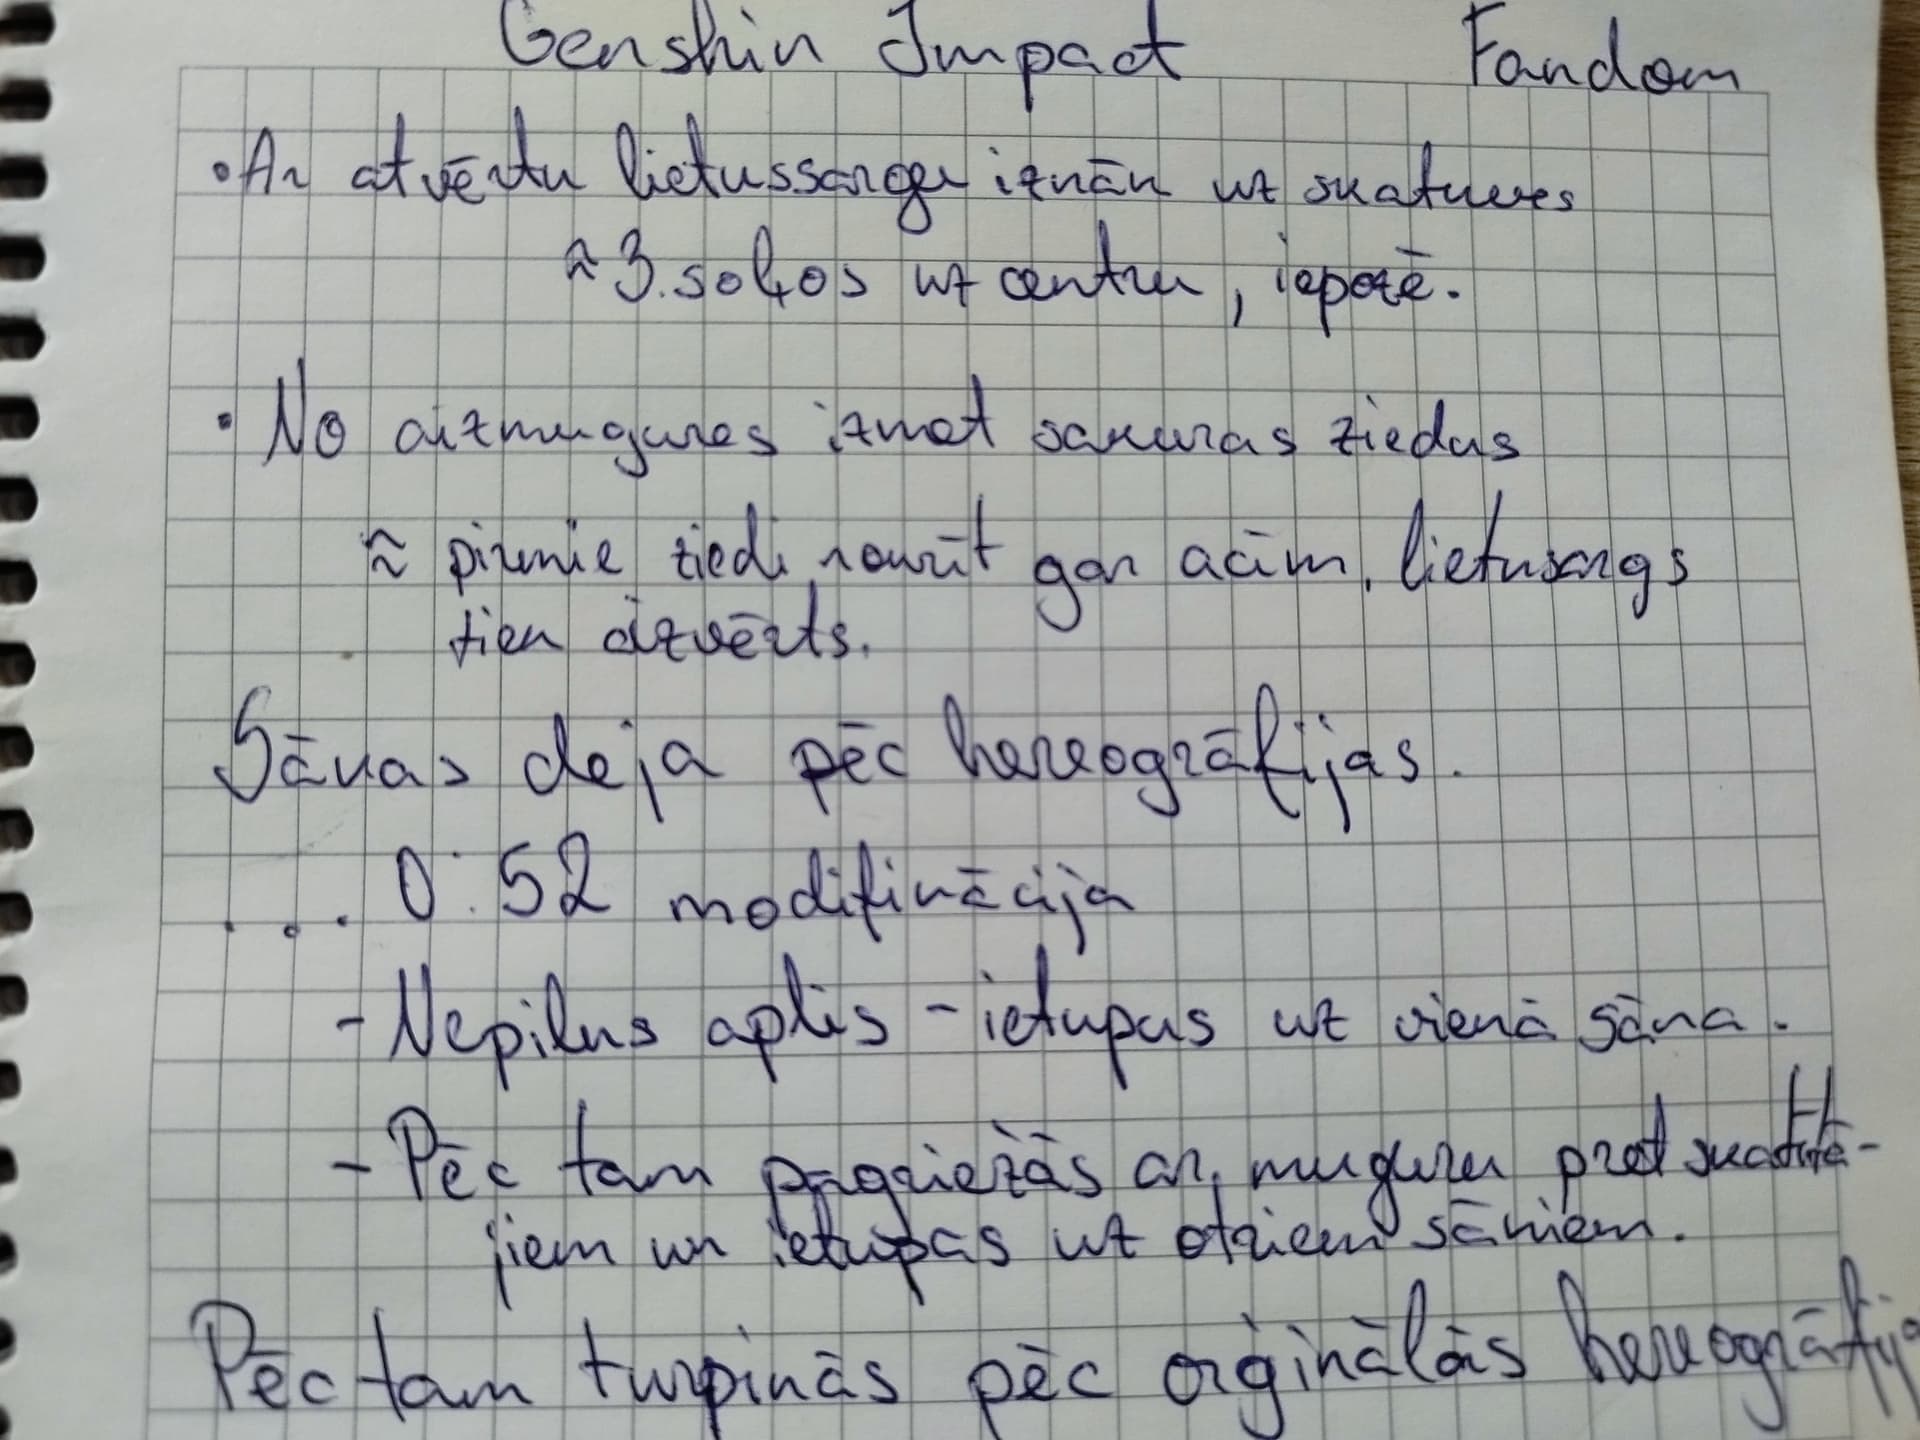 Genshin Impact Fandom
•Ar atvērtu lietussargu iznāk uz skatuves
≈ 3.soļos uz centru, iepozē.
• No aizmugures izmet sakuras ziedus
≈ pirmie ziedi nokrīt gar acīm, lietusargs
tiek aizvērts.
Sākas deja pēc horeogrāfijas.
... 0:52 modifikācija
- Nepilns aplis - ietupas uz vienā sāna.
- Pēc tam pagriežās ar muguru pret skatītā-
jiem un ietupas uz otriem sāniem.
Pēc tam turpinās pēc orģinālās horeogrāfija